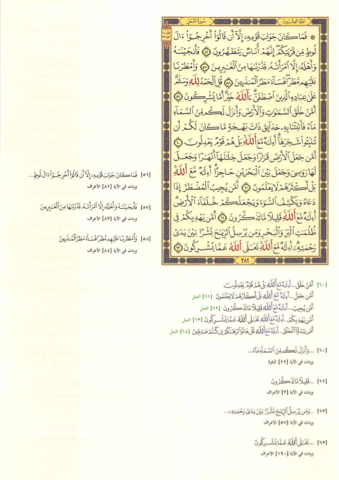 فَمَا كَانَ جَوَابَ قَوْمِهِ إِلَّا أَن قَالُوا أَخْرِجُوا ءَالَ
لُوطٍ مِّن قَرْيَتِكُمْ إِنَّهُمْ أُنَاسٌ يَتَطَهَّرُونَ ٥٦ فَأَنجَيْنَاهُ
وَأَهْلَهُ إِلَّا امْرَأَتَهُ قَدَّرْنَاهَا مِنَ الْغَابِرِينَ ٥٧ وَأَمْطَرْنَا
عَلَيْهِم مَّطَرًا فَسَاءَ مَطَرُ الْمُنذَرِينَ ٥٨ قُلِ الْحَمْدُ لِلَّهِ وَسَلَامٌ
عَلَى عِبَادِهِ الَّذِينَ اصْطَفَى ءَاللَّهُ خَيْرٌ أَمَّا يُشْرِكُونَ ٥٩
أَمَّنْ خَلَقَ السَّمَاوَاتِ وَالْأَرْضَ وَأَنزَلَ لَكُم مِّنَ السَّمَاءِ
مَاءً فَأَنبَتْنَا بِهِ حَدَائِقَ ذَاتَ بَهْجَةٍ مَّا كَانَ لَكُمْ أَن
تُنبِتُوا شَجَرَهَا أَءِلَهٌ مَّعَ اللَّهِ بَلْ هُمْ قَوْمٌ يَعْدِلُونَ ٦٠
أَمَّن جَعَلَ الْأَرْضَ قَرَارًا وَجَعَلَ خِلَالَهَا أَنْهَارًا وَجَعَلَ
لَهَا رَوَاسِيَ وَجَعَلَ بَيْنَ الْبَحْرَيْنِ حَاجِزًا أَءِلَهٌ مَّعَ اللَّهِ
بَلْ أَكْثَرُهُمْ لَا يَعْلَمُونَ ٦١ أَمَّن يُجِيبُ الْمُضْطَرَّ إِذَا
دَعَاهُ وَيَكْشِفُ السُّوءَ وَيَجْعَلُكُمْ خُلَفَاءَ الْأَرْضِ
أَءِلَهٌ مَّعَ اللَّهِ قَلِيلًا مَّا تَذَكَّرُونَ ٦٢ أَمَّن يَهْدِيكُمْ فِي
ظُلُمَاتِ الْبَرِّ وَالْبَحْرِ وَمَن يُرْسِلُ الرِّيَاحَ بُشْرًا بَيْنَ يَدَيْ
رَحْمَتِهِ أَءِلَهٌ مَّعَ اللَّهِ تَعَالَى اللَّهُ عَمَّا يُشْرِكُونَ ٦٣
٣٨٢
(٥٦) فَمَا كَانَ جَوَابَ قَوْمِهِ إِلَّا أَن قَالُوا أَخْرِجُوا ءَالَ لُوطٍ...
وردت في الآية [٨٢] الأعراف
(٥٧) فَأَنجَيْنَاهُ وَأَهْلَهُ إِلَّا امْرَأَتَهُ قَدَّرْنَاهَا مِنَ الْغَابِرِينَ
وردت في الآية [٨٣] الأعراف
(٥٨) وَأَمْطَرْنَا عَلَيْهِم مَّطَرًا فَسَاءَ مَطَرُ الْمُنذَرِينَ
وردت في الآية [٨٤] الأعراف
(٦٠) أَمَّنْ خَلَقَ... أَءِلَهٌ مَّعَ اللَّهِ بَلْ هُمْ قَوْمٌ يَعْدِلُونَ
أَمَّن جَعَلَ... أَءِلَهٌ مَّعَ اللَّهِ بَلْ أَكْثَرُهُمْ لَا يَعْلَمُونَ [٦١] النمل
أَمَّن يُجِيبُ... أَءِلَهٌ مَّعَ اللَّهِ قَلِيلًا مَّا تَذَكَّرُونَ [٦٢] النمل
أَمَّن يَهْدِيكُمْ... أَءِلَهٌ مَّعَ اللَّهِ تَعَالَى اللَّهُ عَمَّا يُشْرِكُونَ [٦٣] النمل
أَمَّن يَبْدَأُ الْخَلْقَ... أَءِلَهٌ مَّعَ اللَّهِ قُلْ هَاتُوا بُرْهَانَكُمْ إِن كُنتُمْ صَادِقِينَ [٦٤] النمل
(٦٠) ...وَأَنزَلَ لَكُم مِّنَ السَّمَاءِ مَاءً...
وردت في الآية [٢٢] البقرة
(٦٢) ...قَلِيلًا مَّا تَذَكَّرُونَ
وردت في الآية [٣] الأعراف
(٦٣) ...وَمَن يُرْسِلُ الرِّيَاحَ بُشْرًا بَيْنَ يَدَيْ رَحْمَتِهِ...
وردت في الآية [٥٧] الأعراف
(٦٣) ...تَعَالَى اللَّهُ عَمَّا يُشْرِكُونَ
وردت في الآية [١٩٠] الأعراف